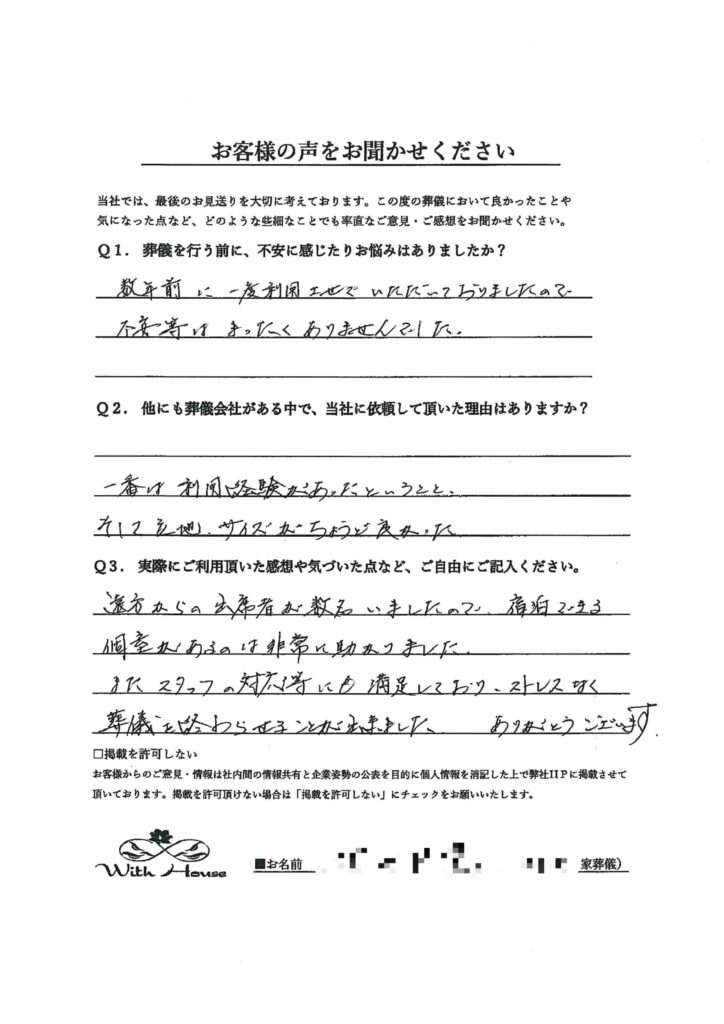 お客様の声をお聞かせください
当社では、最後のお見送りを大切に考えております。この度の葬儀において良かったことや
気になった点など、どのような些細なことでも率直なご意見・ご感想をお聞かせください。
Q1． 葬儀を行う前に、不安に感じたりお悩みはありましたか？
数年前に一度利用させていただいておりましたので
不安等はまったくありませんでした。
Q2． 他にも葬儀会社がある中で、当社に依頼して頂いた理由はありますか？
一番は利用経験があったということ、
そして立地、サイズがちょうど良かった
Q3． 実際にご利用頂いた感想や気づいた点など、ご自由にご記入ください。
遠方からの出席者が数名いましたので、宿泊できる
個室があるのは非常に助かりました。
またスタッフの対応等にも満足しており、ストレスなく
葬儀を終わらせることが出来ました。 ありがとうございます
□掲載を許可しない
お客様からのご意見・情報は社内間の情報共有と企業姿勢の公表を目的に個人情報を消記した上で弊社HPに掲載させて
頂いております。掲載を許可頂けない場合は「掲載を許可しない」にチェックをお願いいたします。
With House
■お名前 家葬儀）